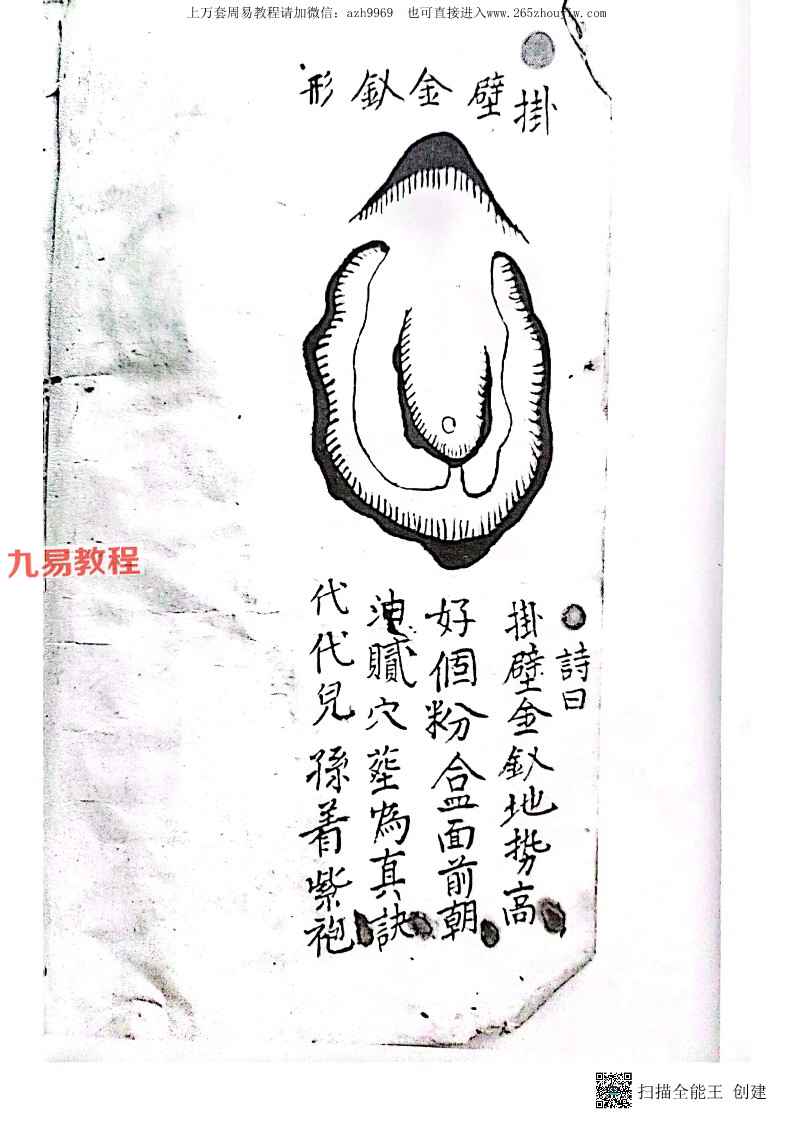 上万套周易教程请加微信：azh9969 也可直接进入www.265zhouyiw.com
掛壁金釵形
詩曰
掛壁金釵地勢高
好個粉盒面前朝
穴塟為真訣
代代兒孫着紫袍
九易教程
扫描全能王 创建